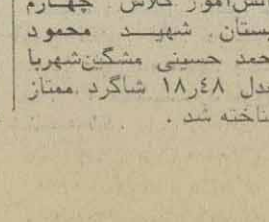 انش‌آموز کلاس چهارم
بستان شهید محمود
حمد حسینی مشگین‌شهربا
عدل ۱۸٫۴۸ شاگرد ممتاز
ناخته شد .